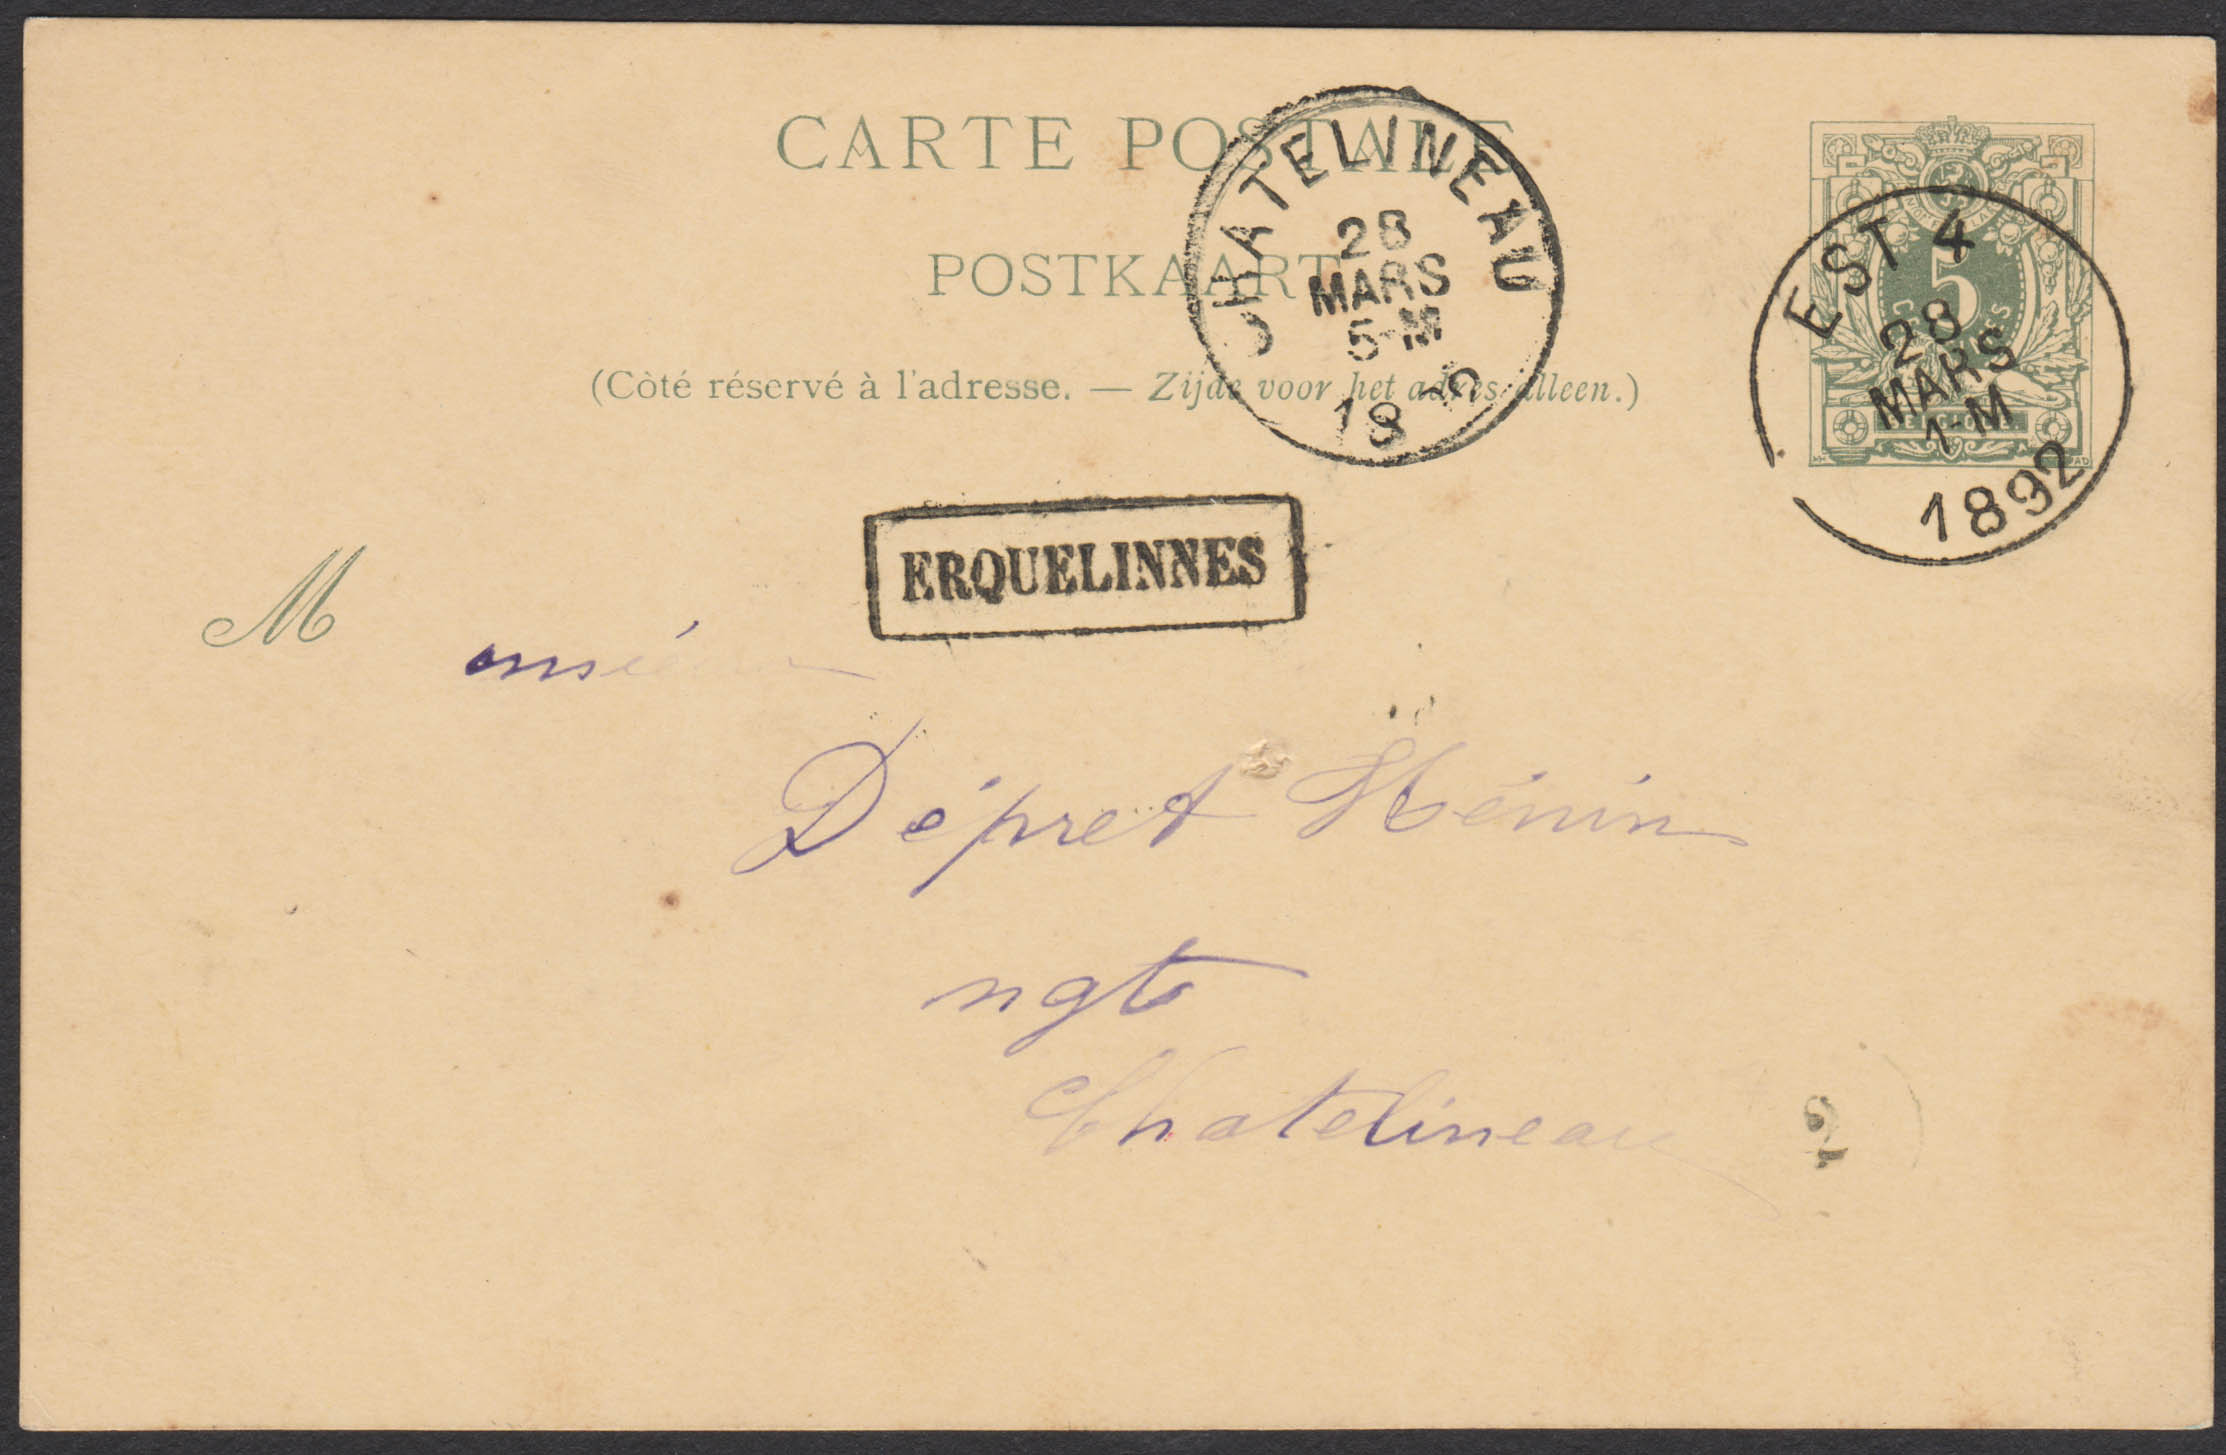 CARTE POSTALE
POSTKAART
(Côté réservé à l'adresse. — Zijde voor het adres alleen.)
CHATELINEAU
28
MARS
5-M
18
EST 4
28
MARS
1-M
1892
5
CENTIMES
BELGIQUE
ERQUELINNES
Monsieur
Dépret Hénin
ngt
Chatelineau